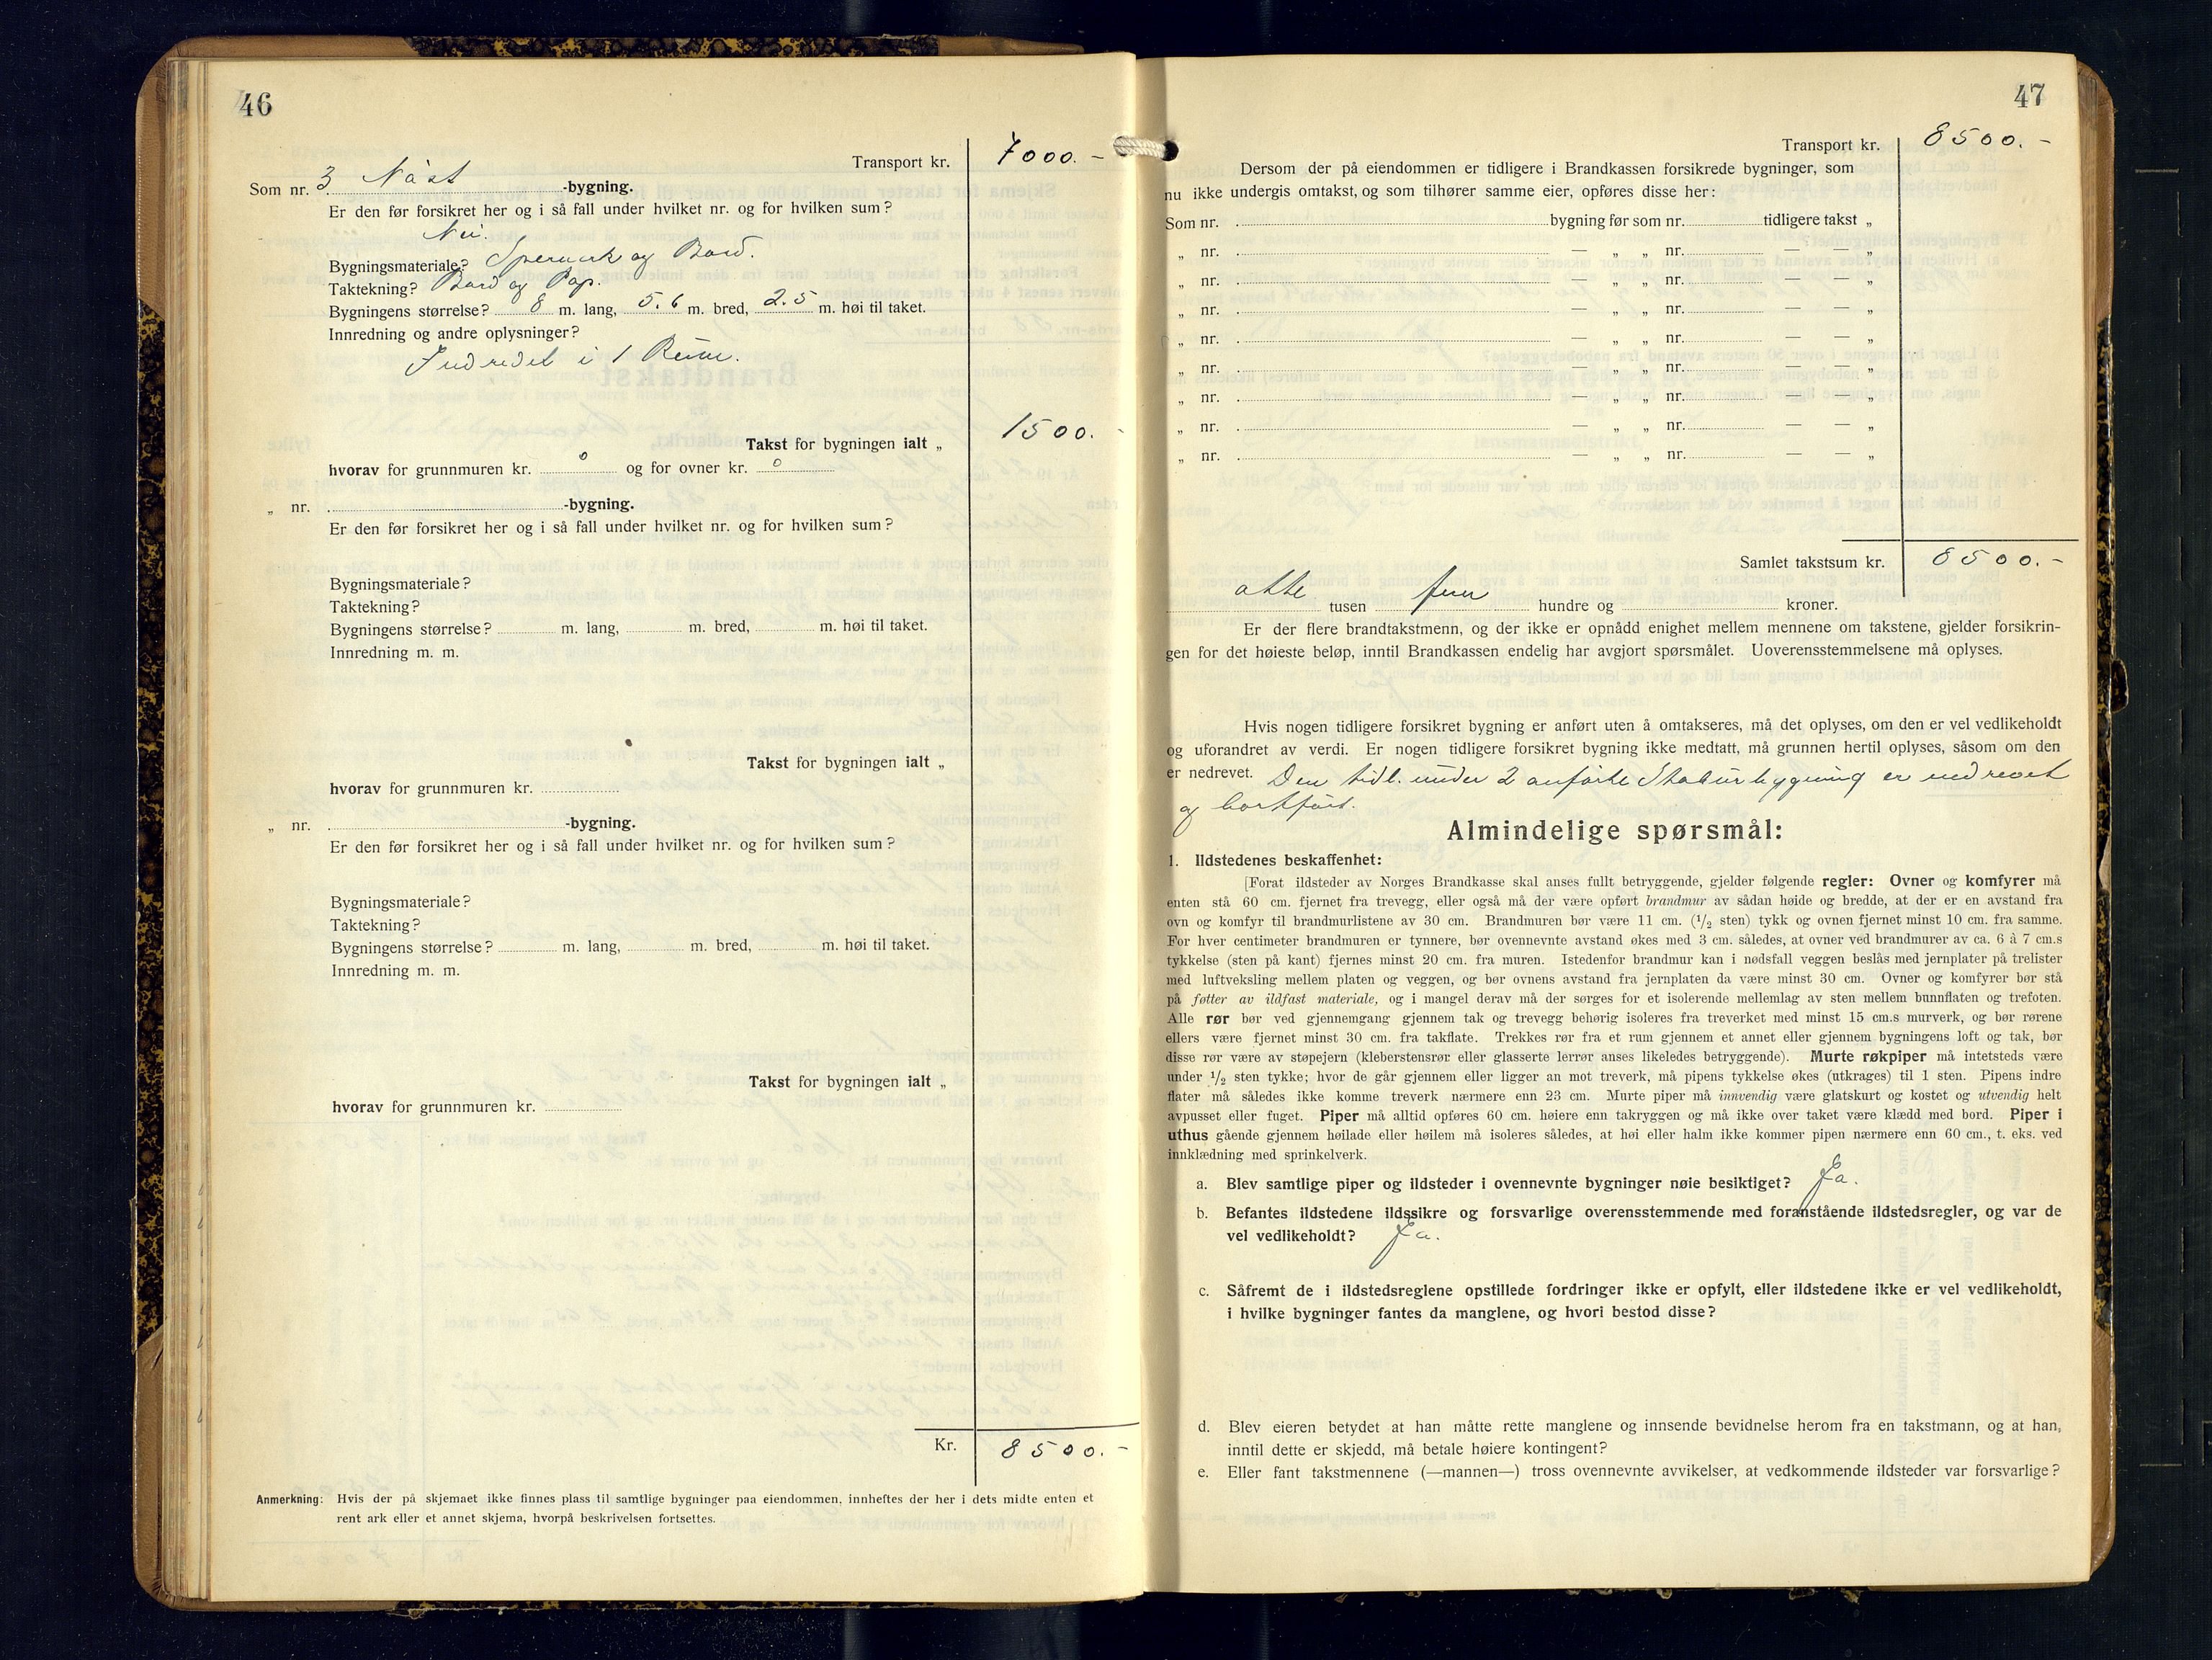 46
Transport kr. 7000.-
Som nr. 3 Nást -bygning.
Er den før forsikret her og i så fall under hvilket nr. og for hvilken sum?
Nei.
Bygningsmateriale? og Bord.
Taktekning? Bord og Pap.
Bygningens størrelse? 8 m. lang, 5.6 m. bred, 2.5 m. høi til taket.
Innredning og andre oplysninger?
Indredet i 1 Rum.
Takst for bygningen ialt „ 1500.-
hvorav for grunnmuren kr. 0 og for ovner kr. 0
„ nr. -bygning.
Er den før forsikret her og i så fall under hvilket nr. og for hvilken sum?
Bygningsmateriale?
Taktekning?
Bygningens størrelse? m. lang, m. bred, m. høi til taket.
Innredning m. m.
Takst for bygningen ialt „
hvorav for grunnmuren kr.
„ nr. -bygning.
Er den før forsikret her og i så fall under hvilket nr. og for hvilken sum?
Bygningsmateriale?
Taktekning?
Bygningens størrelse? m. lang, m. bred, m. høi til taket.
Innredning m. m.
Takst for bygningen ialt „
hvorav for grunnmuren kr.
Kr. 8500.-
Anmerkning: Hvis der på skjemaet ikke finnes plass til samtlige bygninger paa eiendommen, innheftes der her i dets midte enten et
rent ark eller et annet skjema, hvorpå beskrivelsen fortsettes.
47
Transport kr. 8500.-
Dersom der på eiendommen er tidligere i Brandkassen forsikrede bygninger, som
nu ikke undergis omtakst, og som tilhører samme eier, opføres disse her:
Som nr. bygning før som nr. tidligere takst „
„ nr. — „ „ nr. — — „
„ nr. — „ „ nr. — — „
„ nr. — „ „ nr. — — „
„ nr. — „ „ nr. — — „
„ nr. — „ „ nr. — — „
„ nr. — „ „ nr. — — „
„ nr. — „ „ nr. — — „
„ nr. — „ „ nr. — — „
Samlet takstsum kr. 8500.-
otte tusen fem hundre og kroner.
Er der flere brandtakstmenn, og der ikke er opnådd enighet mellem mennene om takstene, gjelder forsikrin-
gen for det høieste beløp, inntil Brandkassen endelig har avgjort spørsmålet. Uoverensstemmelsene må oplyses.
Hvis nogen tidligere forsikret bygning er anført uten å omtakseres, må det oplyses, om den er vel vedlikeholdt
og uforandret av verdi. Er nogen tidligere forsikret bygning ikke medtatt, må grunnen hertil oplyses, såsom om den
er nedrevet. Den tidl. under 2 anførte Stabur bygning er nedrevet
og bortført.
Almindelige spørsmål:
1. Ildstedenes beskaffenhet:
[Forat ildsteder av Norges Brandkasse skal anses fullt betryggende, gjelder følgende regler: Ovner og komfyrer må
enten stå 60 cm. fjernet fra trevegg, eller også må der være opført brandmur av sådan høide og bredde, at der er en avstand fra
ovn og komfyr til brandmurlistene av 30 cm. Brandmuren bør være 11 cm. (1/2 sten) tykk og ovnen fjernet minst 10 cm. fra samme.
For hver centimeter brandmuren er tynnere, bør ovennevnte avstand økes med 3 cm. således, at ovner ved brandmurer av ca. 6 à 7 cm.s
tykkelse (sten på kant) fjernes minst 20 cm. fra muren. Istedenfor brandmur kan i nødsfall veggen beslås med jernplater på trelister
med luftveksling mellem platen og veggen, og bør ovnens avstand fra jernplaten da være minst 30 cm. Ovner og komfyrer bør stå
på føtter av ildfast materiale, og i mangel derav må der sørges for et isolerende mellemlag av sten mellem bunnflaten og trefoten.
Alle rør bør ved gjennemgang gjennem tak og trevegg behørig isoleres fra treverket med minst 15 cm.s murverk, og bør rørene
ellers være fjernet minst 30 cm. fra takflate. Trekkes rør fra et rum gjennem et annet eller gjennem bygningens loft og tak, bør
disse rør være av støpejern (kleberstensrør eller glasserte lerrør anses likeledes betryggende). Murte røkpiper må intetsteds være
under 1/2 sten tykke; hvor de går gjennem eller ligger an mot treverk, må pipens tykkelse økes (utkrages) til 1 sten. Pipens indre
flater må således ikke komme treverk nærmere enn 23 cm. Murte piper må innvendig være glatskurt og kostet og utvendig helt
avpusset eller fuget. Piper må alltid opføres 60 cm. høiere enn takryggen og må ikke over taket være klædd med bord. Piper i
uthus gående gjennem høilade eller høilem må isoleres således, at høi eller halm ikke kommer pipen nærmere enn 60 cm., t. eks. ved
innklædning med sprinkelverk.
a. Blev samtlige piper og ildsteder i ovennevnte bygninger nøie besiktiget? Ja.
b. Befantes ildstedene ildssikre og forsvarlige overensstemmende med foranstående ildstedsregler, og var de
vel vedlikeholdt? Ja.
c. Såfremt de i ildstedsreglene opstillede fordringer ikke er opfylt, eller ildstedene ikke er vel vedlikeholdt,
i hvilke bygninger fantes da manglene, og hvori bestod disse?
d. Blev eieren betydet at han måtte rette manglene og innsende bevidnelse herom fra en takstmann, og at han,
inntil dette er skjedd, må betale høiere kontingent?
e. Eller fant takstmennene (—mannen—) tross ovennevnte avvikelser, at vedkommende ildsteder var forsvarlige?